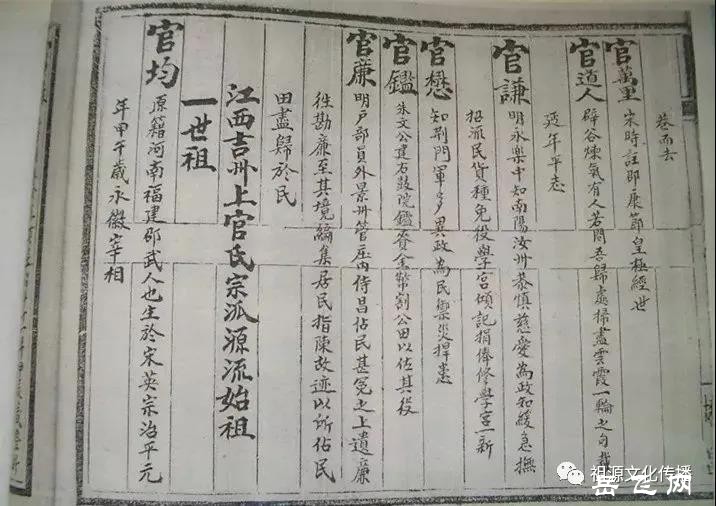 卷而去
官萬里 宋時註邵康節皇極經世
官道人 辟谷煉氣有人若問吾歸處掃盡雲霞一輪之句
延年平志
官謙 明永樂中知南陽汝州恭慎慈愛為政知緩急撫
招派民貨種免役學宮傾記捐俸修學宮一新
官懋 知荆門軍多異政為民禦災捍患
官鑑 朱文公建石鼓院鑑資金幣割公田以佐其役
官廉 明戶部員外景州管庄內侍昌佔民甚冤之上遣廉
往勘廉至其境編集居民指陳故迹以所佔民
田盡歸於民
江西吉州上官氏宗派源流始祖
一世祖
官均 原籍河南福建邵武人也生於宋英宗治平元
年甲午歲永徽宰相
祖源文化传播
岳飞网